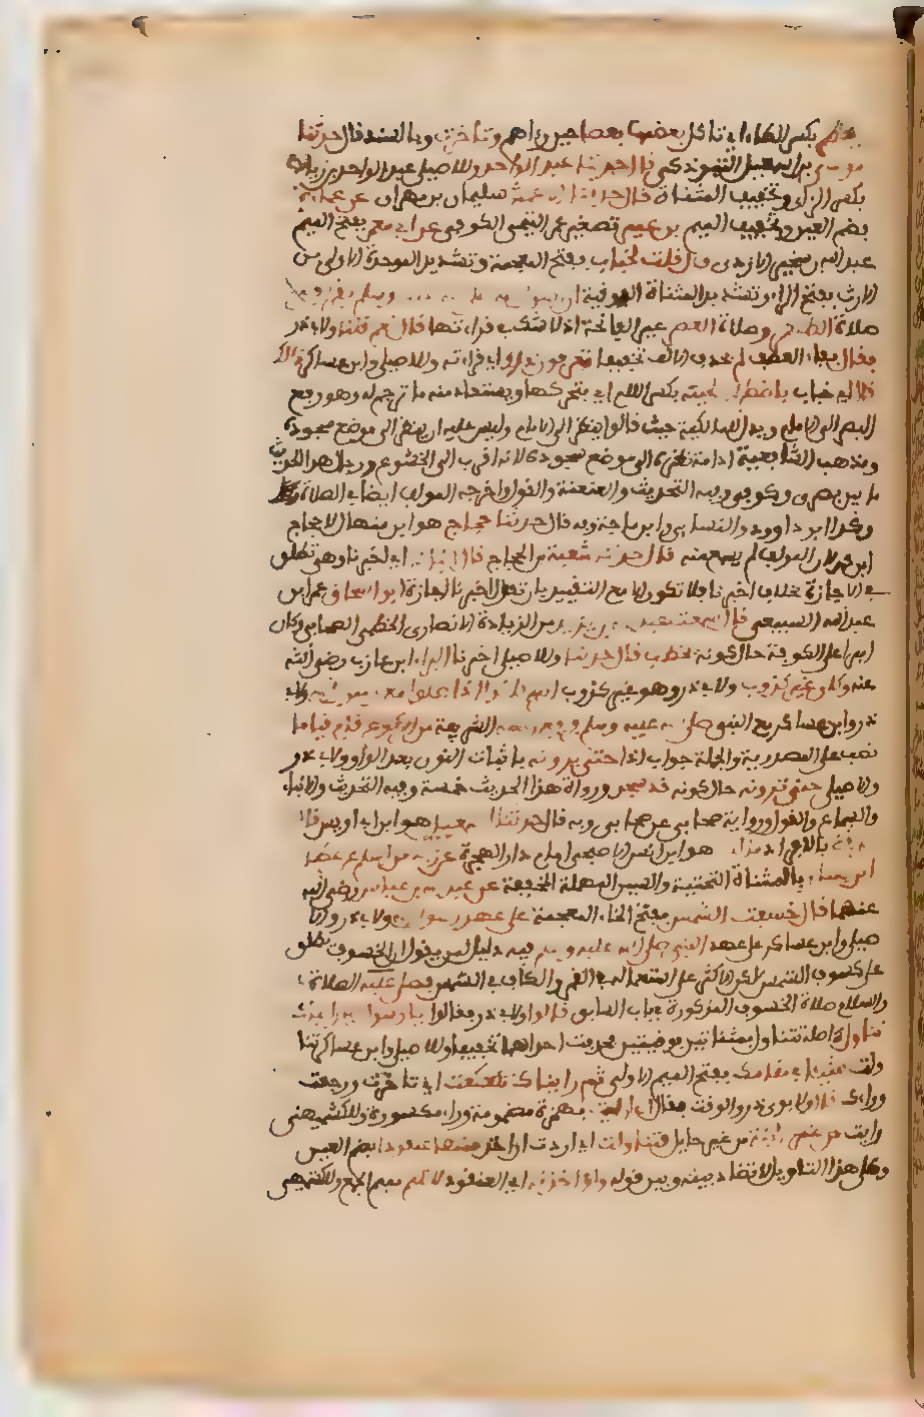 يحطم بكسر الطاء اي تاكل بعضها بعضا حين رايتموني تاخرت وبالسند قال حدثنا
موسى بن اسمعيل التبوذكي قال حدثنا عبد الواحد وللاصيلي عبد الواحد بن زياد
بكسر الزاي وتخفيف المثناة قال حدثنا الاعمش سليمان بن مهران عن عمارة
بضم العين وتخفيف الميم بن عمير تصغير عمر التيمي الكوفي عن ابي معمر بفتح الميم
عبد الله بن سخبرة الازدي قال قلت لخباب بفتح المعجمة وتشديد الموحدة الاولى بن
الارت بفتح الراء وتشديد المثناة الفوقية اكان رسول الله صلى الله عليه وسلم يقرا في
صلاة الظهر وصلاة العصر غير الفاتحة اذ لا شك في قراءتها قال نعم قلنا ولابي ذر
فقال بفاء العطف لم بحذف الالف تخفيفا تعرفون ذلك اي قراءته وللاصيلي وابن عساكر ذاك
قال اي خباب باضطراب لحيته بكسر اللام اي بتحركها ويستفاد منه ما ترجم له وهو رفع
البصر الى الامام ويدل للمالكية حيث قالوا ينظر الى الامام وليس عليه ان ينظر الى موضع سجوده
ومذهب الشافعية ادامة نظره الى موضع سجوده لانه اقرب الى الخشوع ورجال هذا الحديث
ما بين بصري وكوفي وفيه التحديث والعنعنة والقول واخرجه المولف ايضا في الصلاة
وكذا ابو داوود والنساءي وابن ماجة وبه قال حدثنا حجاج هو ابن منهال لا حجاج
ابن محمد لان المولف لم يسمع منه قال حدثنا شعبة بن الحجاج قال انبانا اي اخبرنا وهي تطلق
في الاجازة بخلاف اخبرنا فلا تكون الا مع التقييد بان يقول اخبرنا اجازة ابو اسحاق عمرو بن
عبد الله السبيعي قال سمعت عبد الله بن يزيد من الزيادة الانصاري الخطمي الصحابي وكان
اميرا على الكوفة حال كونه يخطب قال حدثنا وللاصيلي اخبرنا البراء ابن عازب رضي الله
عنه وكان غير كذوب ولابي ذر وهو غير كذوب انهم كانوا اذا صلوا مع رسول الله ولابي
ذر وابن عساكر مع النبي صلى الله عليه وسلم فرفع راسه الشريفة من الركوع قاموا قياما
نصب على المصدرية والجملة جواب اذا حتى يرونه باثبات النون بعد الواو ولابي ذر
والاصيلي حتى يروه حال كونه قد سجد ورواة هذا الحديث خمسة وفيه التحديث والانباء
والسماع والقول ورواية صحابي عن صحابي وبه قال حدثنا اسمعيل هو ابن ابي اويس قال
حدثني بالافراد مالك هو ابن انس الاصبحي امام دار الهجرة عن زيد بن اسلم عن عطاء
ابن يسار بالمثناة التحتية والسين المهملة المخففة عن عبد الله بن عباس رضي الله
عنهما قال خسفت الشمس بفتح الخاء المعجمة على عهد رسول الله ولابي ذر والا
صيلي وابن عساكر على عهد النبي صلى الله عليه وسلم فيه دليل لمن يقول ان الخسوف يطلق
على كسوف الشمس لكن الاكثر على استعماله في القمر والكاف في الشمس فصلى عليه الصلاة
والسلام صلاة الخسوف المذكورة في باب السابق قالوا ولابي ذر فقالوا يا رسول الله رايناك
تناول اصله تتناول بمثناتين فوقيتين فحذفت احداهما تخفيفا وللاصيلي وابن عساكر تناولت
شيئا في مقامك بفتح الميم الاولى ثم رايناك تكعكعت اي تاخرت ورجعت
وراءك قال ولابوي ذر والوقت فقال اني اريت بهمزة مضمومة وراء مكسورة وللكشميهني
رايت الجنة من غير حايل فتناولت اي اردت ان اخذ منها عنقودا بضم العين
وعلى هذا التاويل لا تضاد بينه وبين قوله ولو اخذته اي العنقود لاكلتم بميم الجمع وللكشميهني